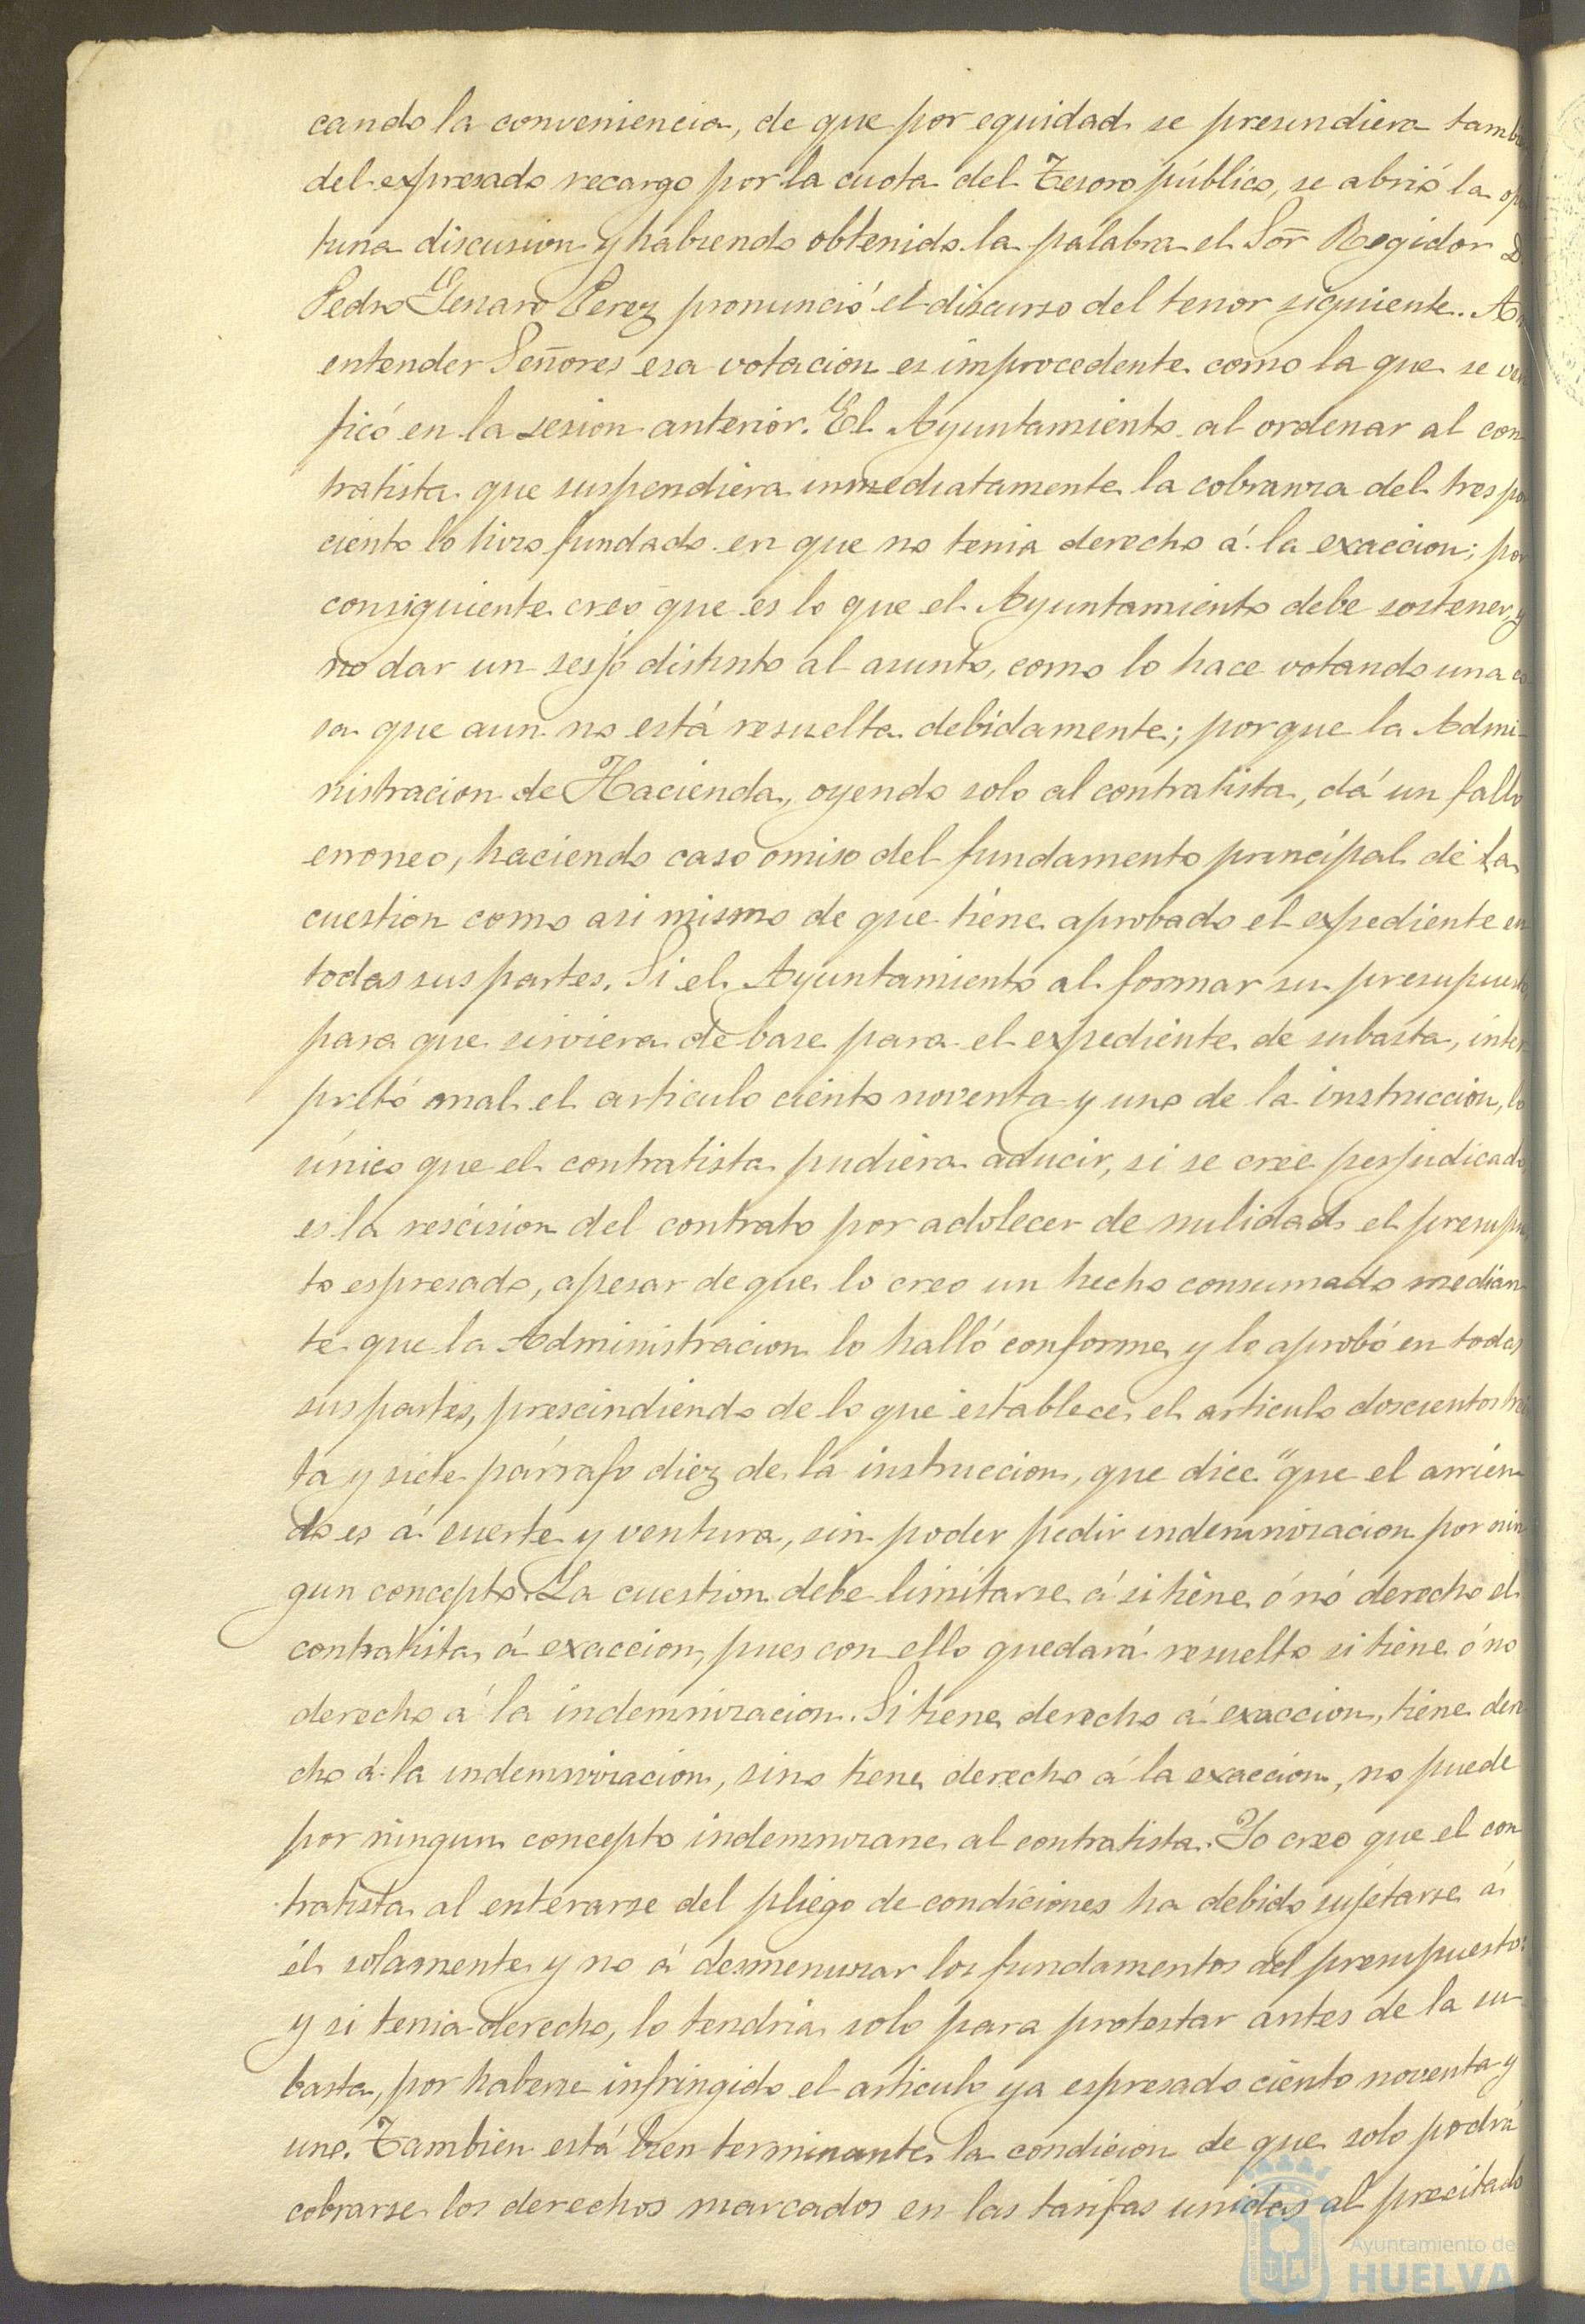 cando la conveniencia, de que por equidad se presundiera tamb
del expresado recargo por la cuota del Tesoro público, se abrió la op
tuna discusion y habiendo obtenido la palabra el Sor̃ Regidor D
Pedro Genaro Perez pronunció el discurso del tenor siguiente. A
entender Señores esa votacion es improcedente como la que se veri
ficó en la sesion anterior. El Ayuntamiento al ordenar al con
tratista que suspendiera inmediatamente la cobranza del tres por
ciento lo hizo fundado en que no tenia derecho á la exaccion; por
consiguiente creo que es lo que el Ayuntamiento debe sostener, y
no dar un sesjo distinto al asunto, como lo hace votando una co
sa que aun no está resuelta debidamente; porque la Admi-
nistracion de Hacienda, oyendo solo al contratista, dá un fallo
erroneo, haciendo caso omiso del fundamento principal de la
cuestion como asi mismo de que tiene aprobado el expediente en
todas sus partes. Si el Ayuntamiento al formar su presupuesto
para que sirviera de base para el expediente de subasta, inter
pretó mal el articulo ciento noventa y uno de la instruccion, lo
único que el contratista pudiera aducir, si se cree perjudicado
es la rescision del contrato por adolecer de nulidad el presupu
to espresado, apesar de que lo creo un hecho consumado median
te que la Administracion lo halló conforme y lo aprobó en todas
sus partes, prescindiendo de lo que establece el articulo doscientos trein
ta y siete párrafo diez de la instruccion, que dice "que el arrien-
do es á suerte y ventura, sin poder pedir indemnizacion por nin
gun concepto. La cuestion debe limitarse á si tiene ó nó derecho el
contratista á exaccion, pues con ello quedará resuelto si tiene ó no
derecho á la indemnizacion. Si tiene derecho á exaccion, tiene dere
cho á la indemnizacion, sino tiene derecho á la exaccion, no puede
por ningun concepto indemnizarse al contratista. Yo creo que el con
tratista al enterarse del pliego de condiciones ha debido sujetarse á
él solamente y no á desmenuzar los fundamentos del presupuesto:
y si tenia derecho, lo tendria solo para protestar antes de la su-
basta, por haberse infringido el articulo ya espresado ciento noventa y
uno. Tambien está bien terminante la condicion de que solo podrá
cobrarse los derechos marcados en las tarifas unidas al precitado
Ayuntamiento de
HUELVA